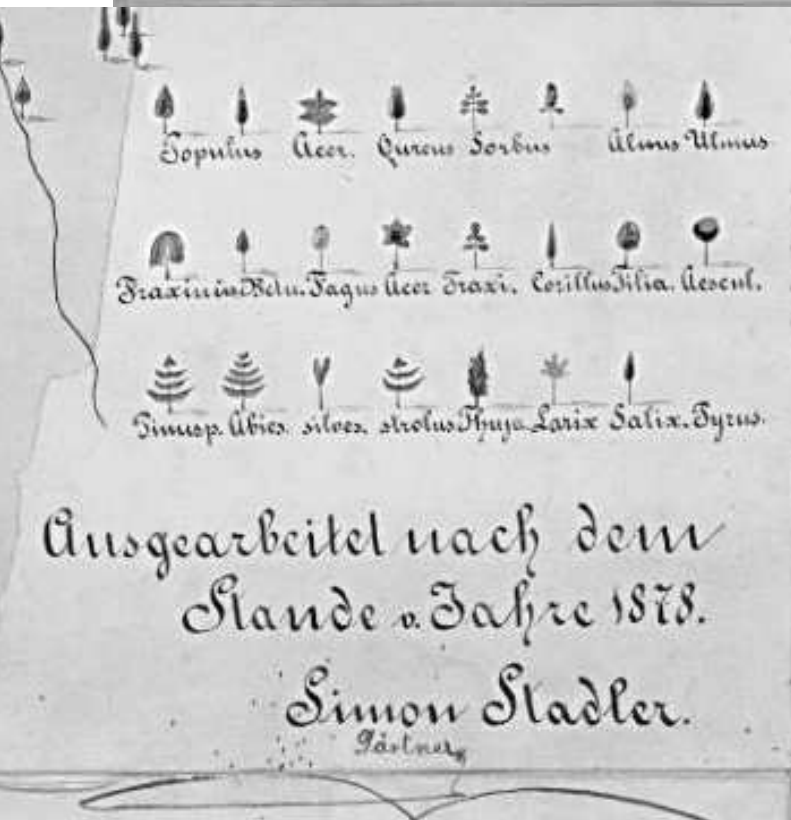 Populus Acer. Qureus Sorbus Alnus Ulmus
Fraxinius Betu. Fagus Acer Fraxi. Corillus Tilia. Aescul.
Pinusp. Abies. silves. strolus Thuja Larix Salix. Pyrus.
Ausgearbeitet nach dem
Stande v. Jahre 1878.
Simon Stadler.
Gärtner